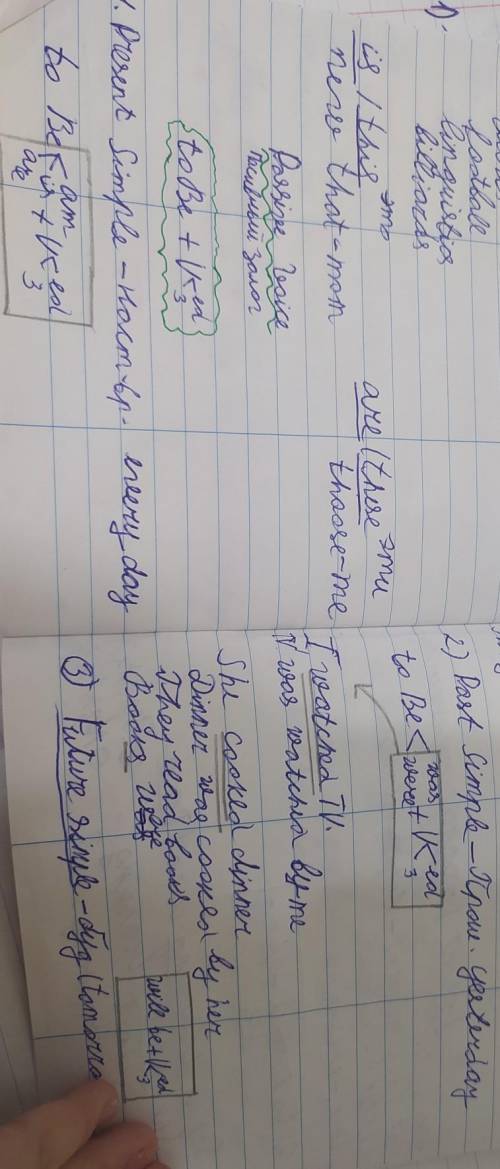 1).
football
linguistics
billiards
is / this это
near that - тот
are / these эти
those - те
Passive Voice
Пассивный залог
to Be + V ed
3
1. Present Simple - Наст. вр. every day
to Be < am
is
are
+ V ed
3
2) Past Simple - Прош. yesterday
to Be < was
were + V ed
3
I watched TV.
TV was watched by me
She cooked dinner
Dinner was cooked by her
They read books
Books were
3) Future Simple - Буд (tomorro
will be + V ed
3